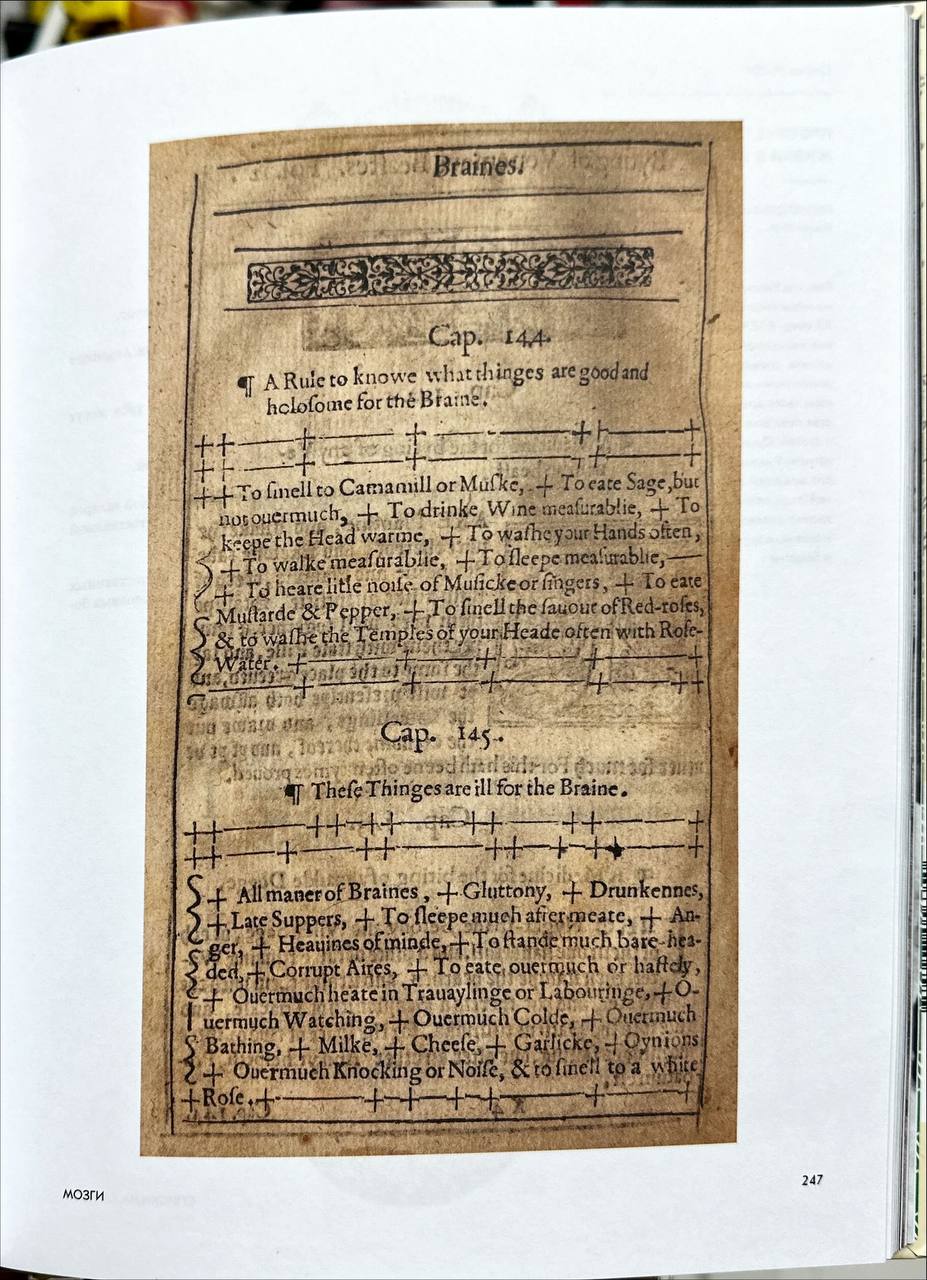 Braines.
Cap. 144.
¶ A Rule to knowe what thinges are good and
holosome for the Braine.
To smell to Camamill or Muske, + To eate Sage, but
not ouermuch, + To drinke Wine measurablie, + To
keepe the Head warme, + To washe your Hands often,
+ To walke measurablie, + To sleepe measurablie,
+ To heare litle noise of Musicke or singers, + To eate
Mustarde & Pepper, + To smell the sauour of Red-roses,
& to washe the Temples of your Heade often with Rose-
Water.
Cap. 145.
¶ These Thinges are ill for the Braine.
+ All maner of Braines, + Gluttony, + Drunkennes,
+ Late Suppers, + To sleepe much after meate, + An-
ger, + Heauines of minde, + To stande much bare-hea-
ded, + Corrupt Aires, + To eate ouermuch or hastely,
+ Ouermuch heate in Trauaylinge or Labouringe, + O-
uermuch Watching, + Ouermuch Colde, + Ouermuch
Bathing, + Milke, + Cheese, + Garlicke, + Oynions
+ Ouermuch Knocking or Noise, & to smell to a white
+ Rose.
МОЗГИ
247